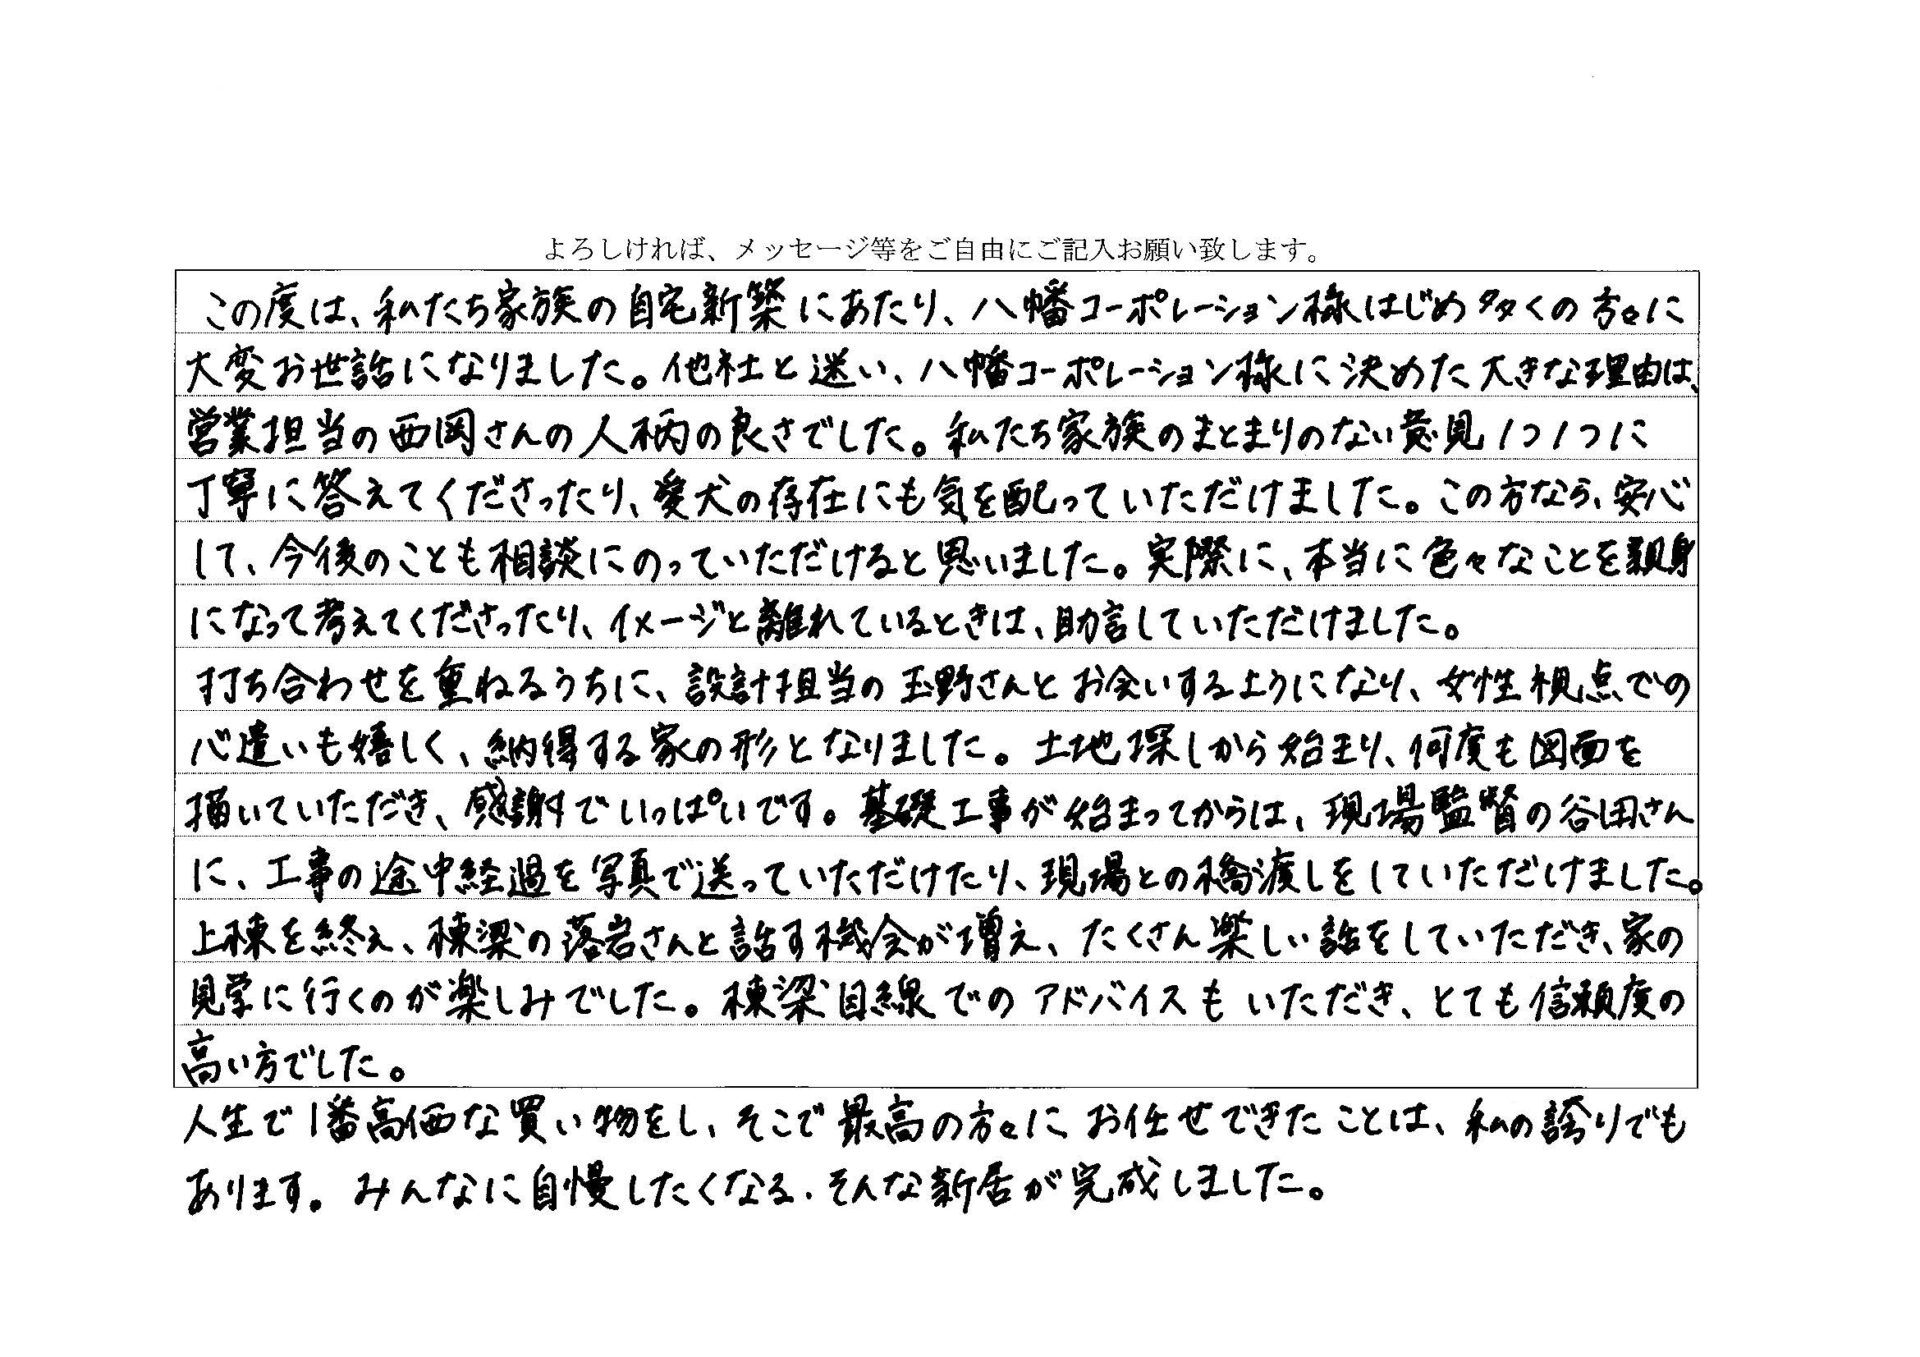 よろしければ、メッセージ等をご自由にご記入お願い致します。
この度は、私たち家族の自宅新築にあたり、八幡コーポレーション様はじめ多くの方々に
大変お世話になりました。他社と迷い、八幡コーポレーション様に決めた大きな理由は、
営業担当の西岡さんの人柄の良さでした。私たち家族のまとまりのない意見1つ1つに
丁寧に答えてくださったり、愛犬の存在にも気を配っていただけました。この方なら、安心
して、今後のことも相談にのっていただけると思いました。実際に、本当に色々なことを親身
になって考えてくださったり、イメージと離れているときは、助言していただけました。
打ち合わせを重ねるうちに、設計担当の玉野さんとお会いするようになり、女性視点での
心遣いも嬉しく、納得する家の形となりました。土地探しから始まり、何度も図面を
描いていただき、感謝でいっぱいです。基礎工事が始まってからは、現場監督の谷田さん
に、工事の途中経過を写真で送っていただけたり、現場との橋渡しをしていただけました。
上棟を終え、棟梁の落岩さんと話す機会が増え、たくさん楽しい話をしていただき、家の
見学に行くのが楽しみでした。棟梁目線でのアドバイスもいただき、とても信頼度の
高い方でした。
人生で1番高価な買い物をし、そこで最高の方々に、お任せできたことは、私の誇りでも
あります。みんなに自慢したくなる、そんな新居が完成しました。